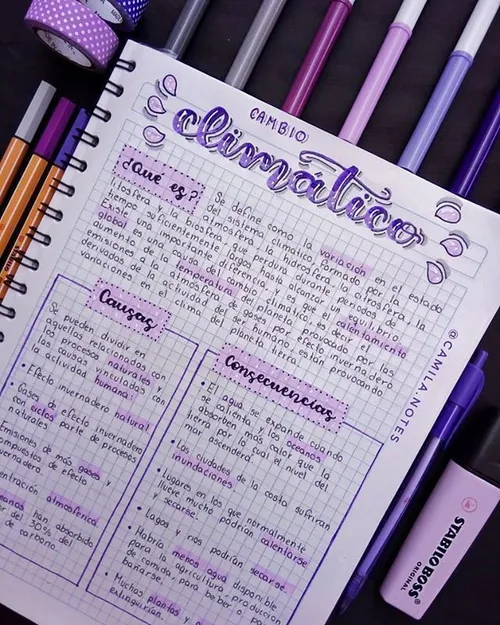 CAMBIO
climático
¿Que es?
Se define como la variación en el estado
del sistema climatico, formado por la
atmosfera, la hidrosfera, la criosfera, la
litosfera y la biosfera, que perdura durante periodos de
tiempo suficientemente largos hasta alcanzar
Existe una importante diferencia, y es que el equilibrio
global es una causa del cambio climatico, es decir el calentamiento
aumento de la temperatura del planeta provocado por las
emisiones a la atmósfera de gases por efecto invernadero
derivadas de la actividad del ser humano, están provocando
variaciones en el clima
del planeta tierra.
Causas
Se pueden dividir en
aquellas relacionadas con
los procesos naturales y
las causas vinculadas con
la actividad humana:
• Efecto invernadero natural
• Gases de efecto invernadero
son ciclos parte de procesos
naturales
Emisiones de más gases y
compuestos de efecto
invernadero.
atmosférica
han absorbido
del 30% del
de carbono.
Consecuencias
• El agua se expande cuando
se calienta y los oceanos
absorben más calor que la
tierra por lo cual el nivel del
mar ascendera.
• Las ciudades de la costa sufriran
inundaciones
• Lugares en los que normalmente
llueve mucho podrian calentarse
y secarse.
• Lagos y rios podrian secarse.
• Habria menos agua disponible
para la agricultura, produccion
de comida, para beber o para
bañarse.
• Muchas plantas y
extinguirían.
@CAMILA.NOTES
STABILO BOSS
ORIGINAL